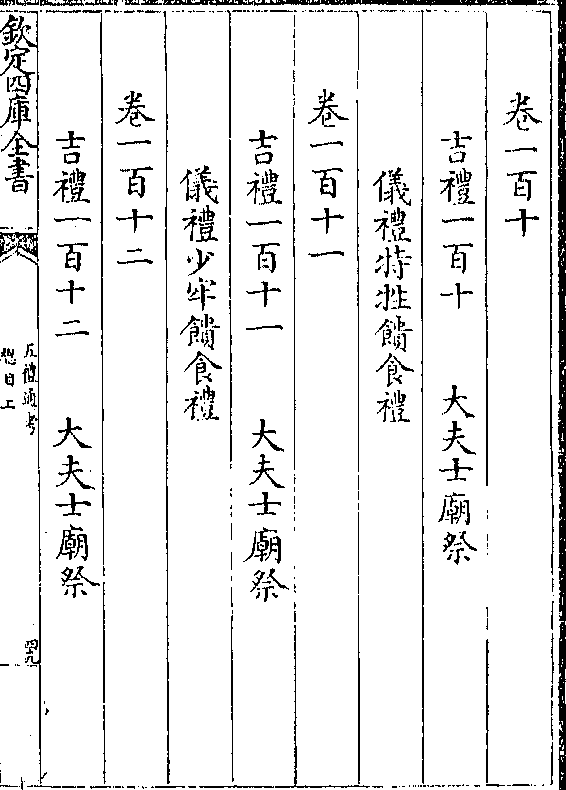 卷一百十
吉禮一百十 大夫士廟祭
儀禮特牲饋食禮
卷一百十一
吉禮一百十一 大夫士廟祭
儀禮少牢饋食禮
卷一百十二
吉禮一百十二 大夫士廟祭
欽定四庫全書
五禮通考
總目上
四九